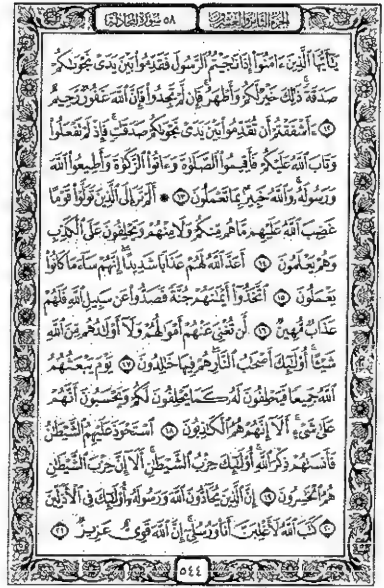 الجزء الثامن والعشرون ٥٨ سورة المجادلة
يَٰٓأَيُّهَا ٱلَّذِينَ ءَامَنُوٓاْ إِذَا نَٰجَيۡتُمُ ٱلرَّسُولَ فَقَدِّمُواْ بَيۡنَ يَدَيۡ نَجۡوَىٰكُمۡ
صَدَقَةٗۚ ذَٰلِكَ خَيۡرٞ لَّكُمۡ وَأَطۡهَرُۚ فَإِن لَّمۡ تَجِدُواْ فَإِنَّ ٱللَّهَ غَفُورٞ رَّحِيمٌ
١٢ ءَأَشۡفَقۡتُمۡ أَن تُقَدِّمُواْ بَيۡنَ يَدَيۡ نَجۡوَىٰكُمۡ صَدَقَٰتٖۚ فَإِذۡ لَمۡ تَفۡعَلُواْ
وَتَابَ ٱللَّهُ عَلَيۡكُمۡ فَأَقِيمُواْ ٱلصَّلَوٰةَ وَءَاتُواْ ٱلزَّكَوٰةَ وَأَطِيعُواْ ٱللَّهَ
وَرَسُولَهُۥۚ وَٱللَّهُ خَبِيرُۢ بِمَا تَعۡمَلُونَ ١٣ ۞ أَلَمۡ تَرَ إِلَى ٱلَّذِينَ تَوَلَّوۡاْ قَوۡمًا
غَضِبَ ٱللَّهُ عَلَيۡهِم مَّا هُم مِّنكُمۡ وَلَا مِنۡهُمۡ وَيَحۡلِفُونَ عَلَى ٱلۡكَذِبِ
وَهُمۡ يَعۡلَمُونَ ١٤ أَعَدَّ ٱللَّهُ لَهُمۡ عَذَابٗا شَدِيدًاۖ إِنَّهُمۡ سَآءَ مَا كَانُواْ
يَعۡمَلُونَ ١٥ ٱتَّخَذُوٓاْ أَيۡمَٰنَهُمۡ جُنَّةٗ فَصَدُّواْ عَن سَبِيلِ ٱللَّهِ فَلَهُمۡ
عَذَابٞ مُّهِينٞ ١٦ لَّن تُغۡنِيَ عَنۡهُمۡ أَمۡوَٰلُهُمۡ وَلَآ أَوۡلَٰدُهُم مِّنَ ٱللَّهِ
شَيۡـًٔاۚ أُوْلَٰٓئِكَ أَصۡحَٰبُ ٱلنَّارِۖ هُمۡ فِيهَا خَٰلِدُونَ ١٧ يَوۡمَ يَبۡعَثُهُمُ
ٱللَّهُ جَمِيعٗا فَيَحۡلِفُونَ لَهُۥ كَمَا يَحۡلِفُونَ لَكُمۡ وَيَحۡسَبُونَ أَنَّهُمۡ
عَلَىٰ شَيۡءٍۚ أَلَآ إِنَّهُمۡ هُمُ ٱلۡكَٰذِبُونَ ١٨ ٱسۡتَحۡوَذَ عَلَيۡهِمُ ٱلشَّيۡطَٰنُ
فَأَنسَىٰهُمۡ ذِكۡرَ ٱللَّهِۚ أُوْلَٰٓئِكَ حِزۡبُ ٱلشَّيۡطَٰنِۚ أَلَآ إِنَّ حِزۡبَ ٱلشَّيۡطَٰنِ
هُمُ ٱلۡخَٰسِرُونَ ١٩ إِنَّ ٱلَّذِينَ يُحَآدُّونَ ٱللَّهَ وَرَسُولَهُۥٓ أُوْلَٰٓئِكَ فِي ٱلۡأَذَلِّينَ
٢٠ كَتَبَ ٱللَّهُ لَأَغۡلِبَنَّ أَنَا۠ وَرُسُلِيٓۚ إِنَّ ٱللَّهَ قَوِيٌّ عَزِيزٞ ٢١
٥٤٤